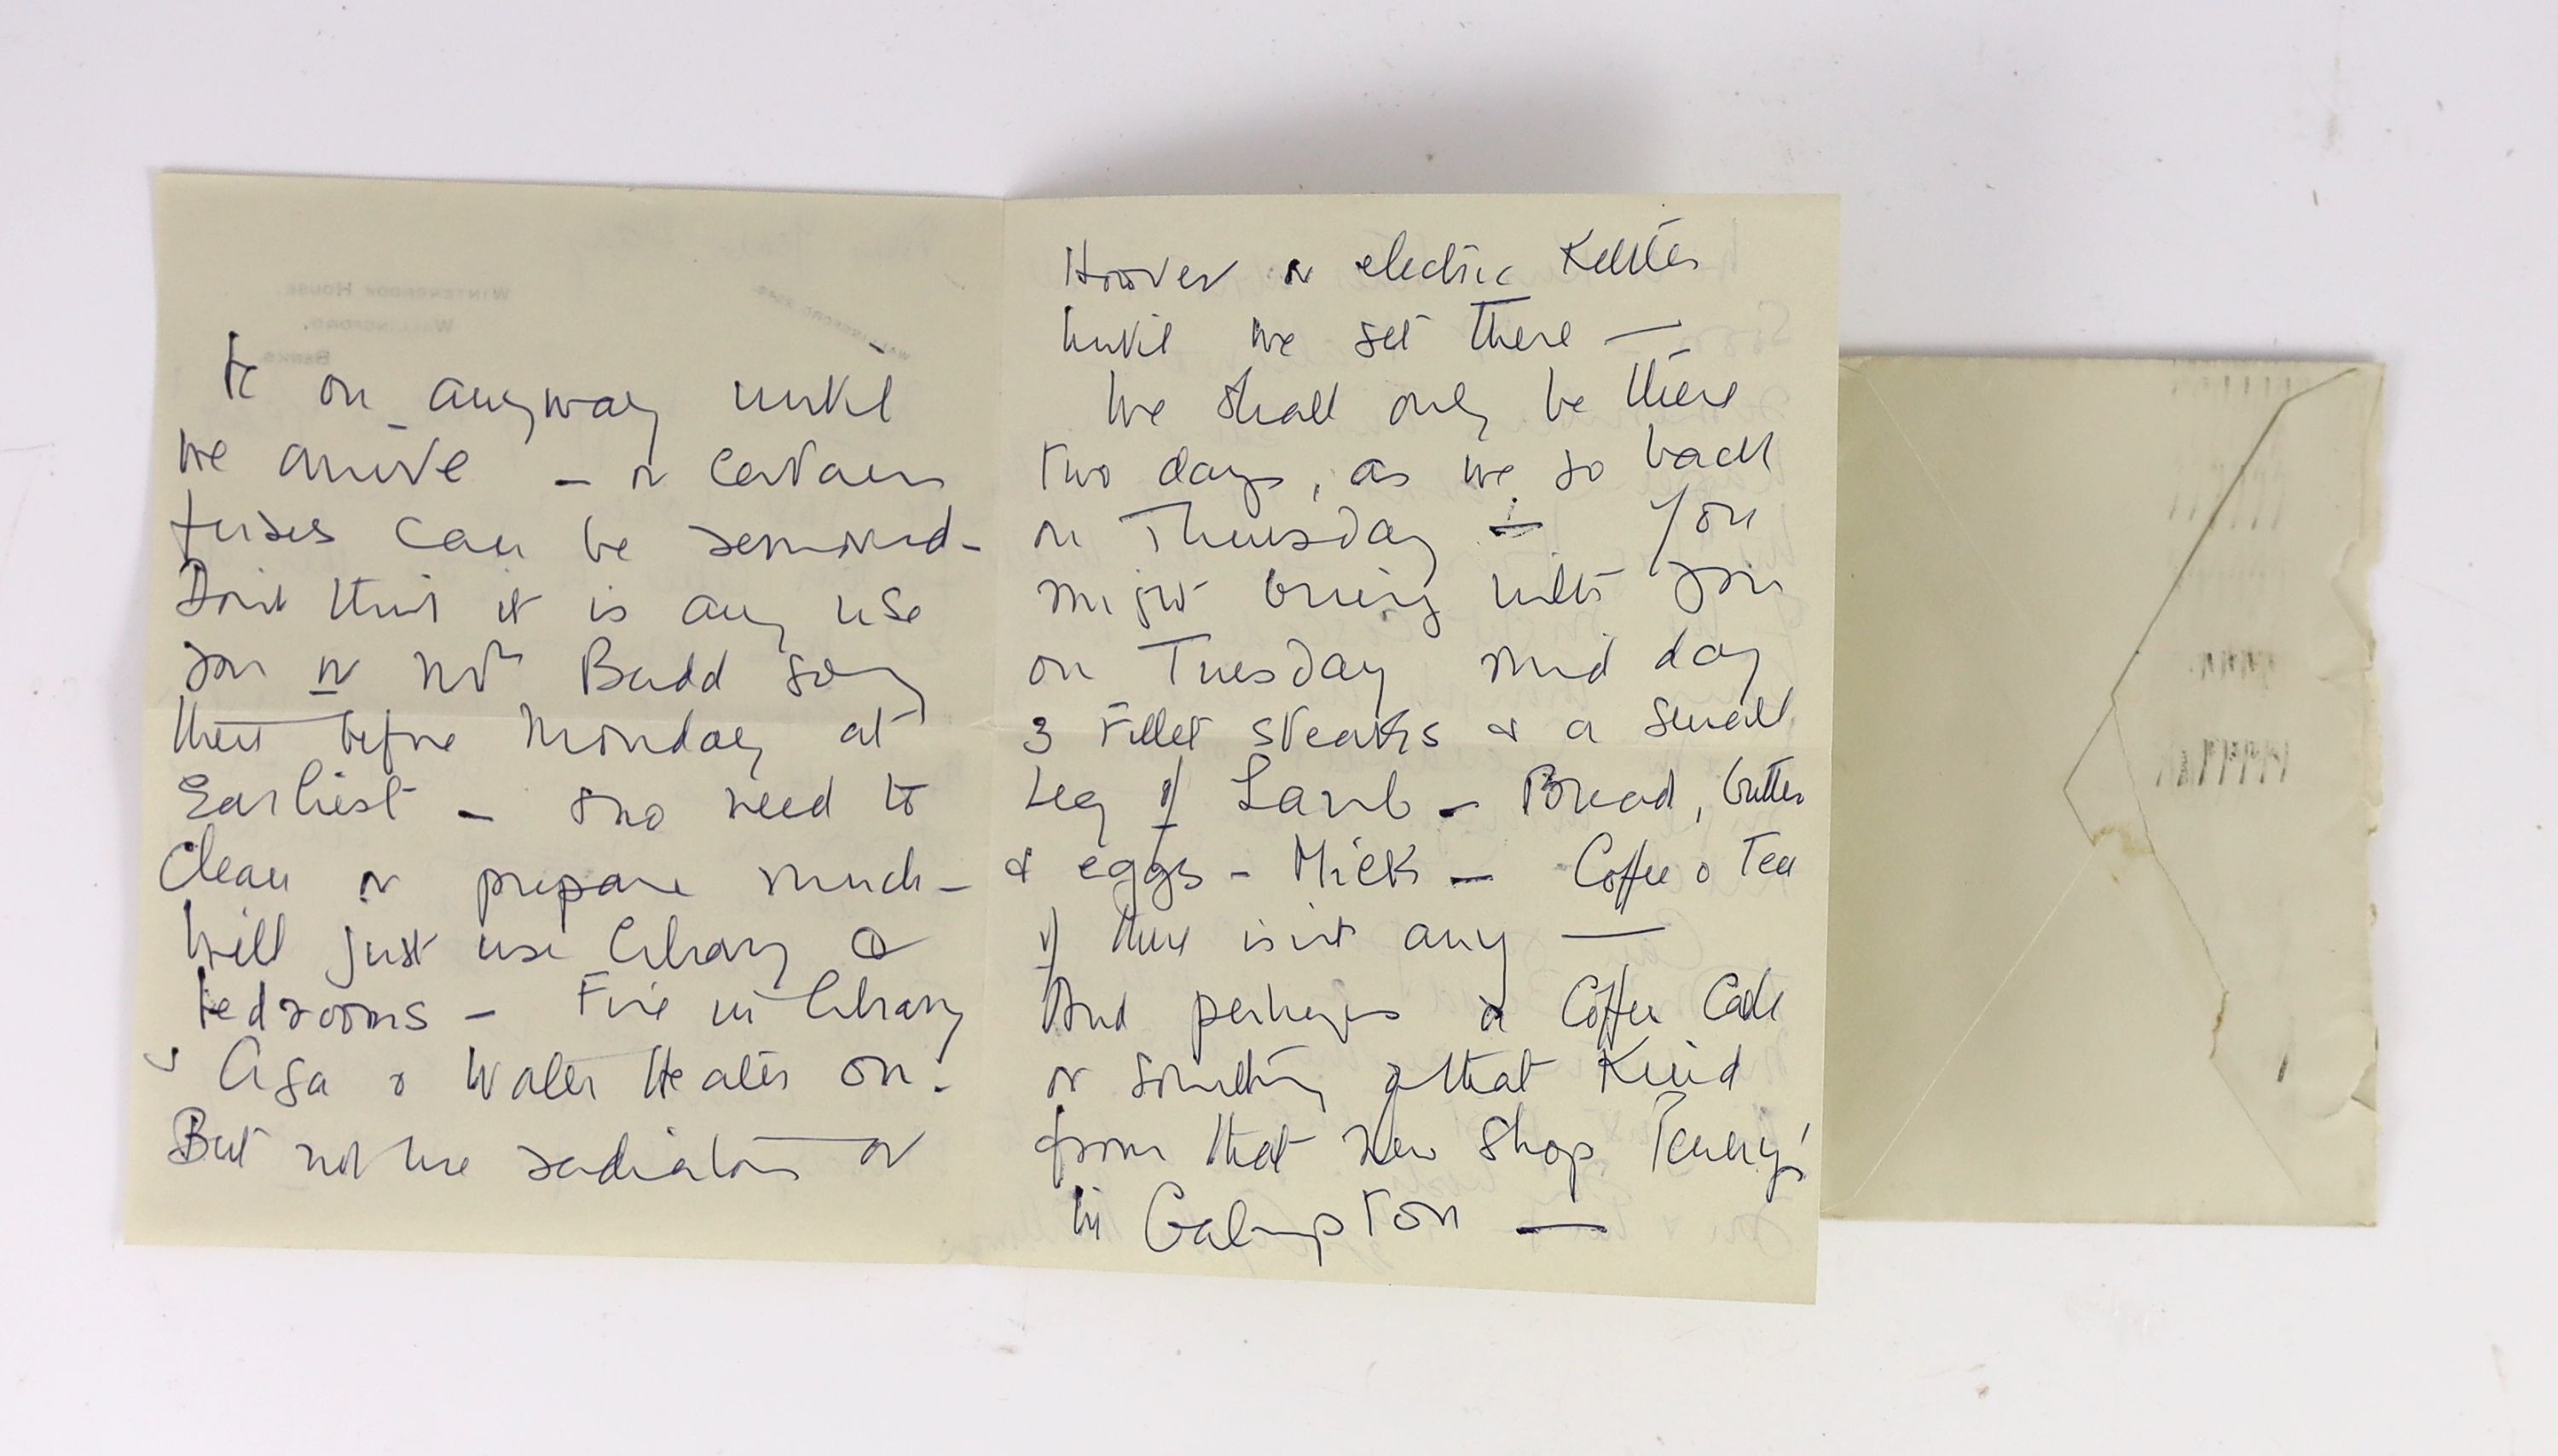 WINTERBROOK HOUSE,
WALLINGFORD,
BERKS.
be on anyway until
we arrive — or certain
fuses can be removed —
Don't think it is any use
you or Mrs Budd going
there before Monday at
Earliest — & no need to
Clean or prepare much —
Will just use library &
bedrooms — Fire in library
& Aga & Water Heater on.
But not use radiators or
Hoover or electric Kettles
until we get there —
We shall only be there
two days, as we go back
on Thursday — You
might bring with you
on Tuesday mid day
3 Fillet steaks & a small
Leg of Lamb — Bread, butter
& eggs — Milk — Coffee & Tea
if there isn't any —
And perhaps a Coffee Cake
or something of that Kind
from that new Shop
in Galmpton —